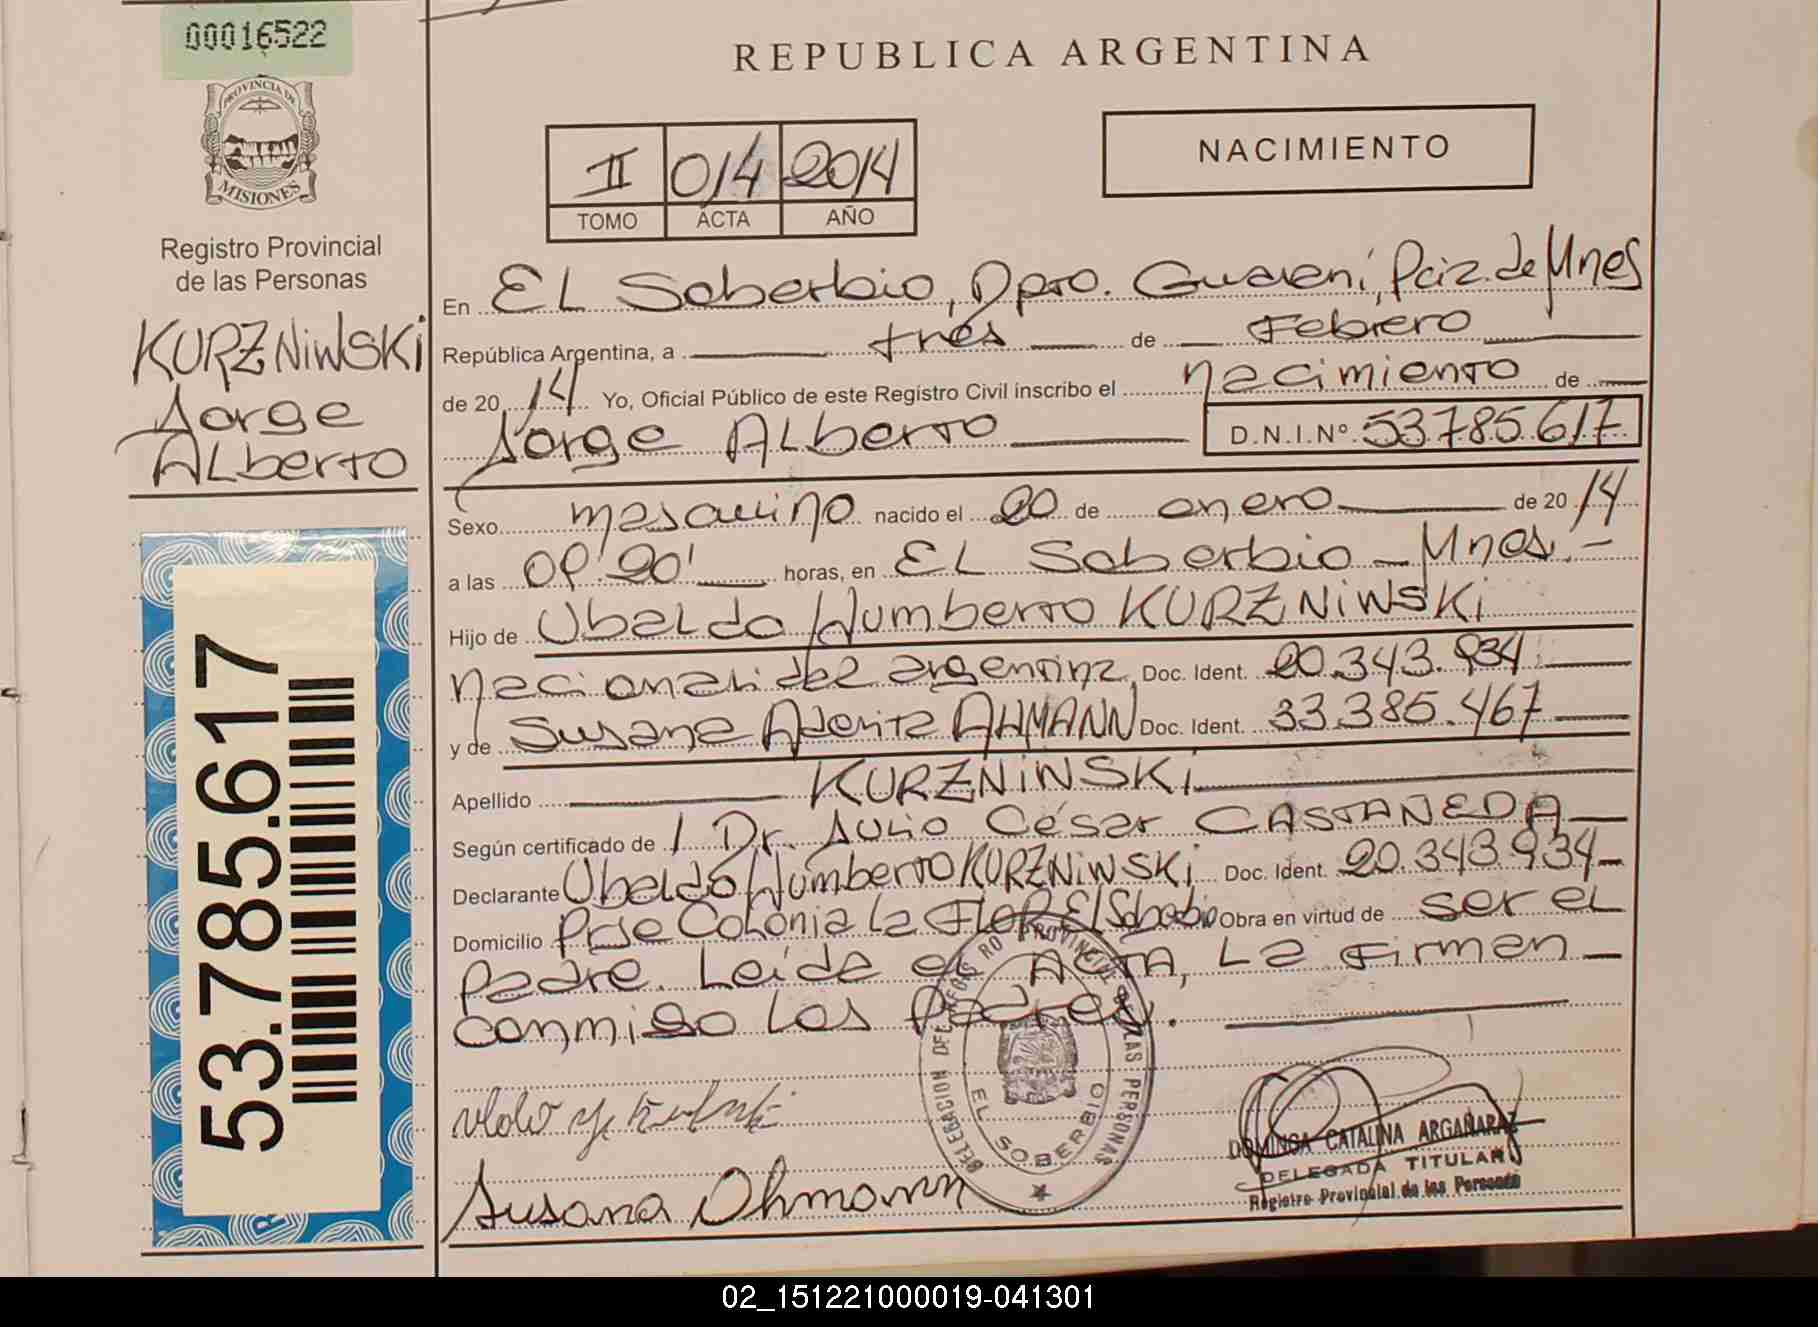 00016522
PROVINCIA DE
MISIONES
Registro Provincial
de las Personas
KURZNiWSKi
Jorge
ALberto
53.785.617
REPUBLICA ARGENTINA
II 014 2014
TOMO ACTA AÑO
NACIMIENTO
En EL Soberbio, Dpto. Guarani, Pciz. de Mnes
República Argentina, a tres de Febrero
de 2014 Yo, Oficial Público de este Registro Civil inscribo el nacimiento de
Jorge ALberto D.N.I.Nº 53.785.617
Sexo masculino nacido el 20 de enero de 2014
a las 20' horas, en EL Soberbio - Mnes.-
Hijo de Ubaldo Humberto KURZNiWSKi
nacionalidad argentina, Doc. Ident. 20.343.934
y de Susana AHMANN Doc. Ident. 33.385.467
Apellido KURZNiWSKi
Según certificado de Dr. Julio César CASTAÑEDA
Declarante Ubaldo Humberto KURZNiWSKi Doc. Ident. 20.343.934
Domicilio Prje Colonia La FLOR El Soberbio Obra en virtud de ser eL
padre. Leida el ACTA, La Firman
conmigo Los Padres.
DELEGACION DEL REGISTRO PROVINCIAL DE LAS PERSONAS
EL SOBERBIO
Susana Ohmann
DOMINGA CATALINA ARGAÑARAZ
DELEGADA TITULAR
Registro Provincial de las Personas
02_151221000019-041301